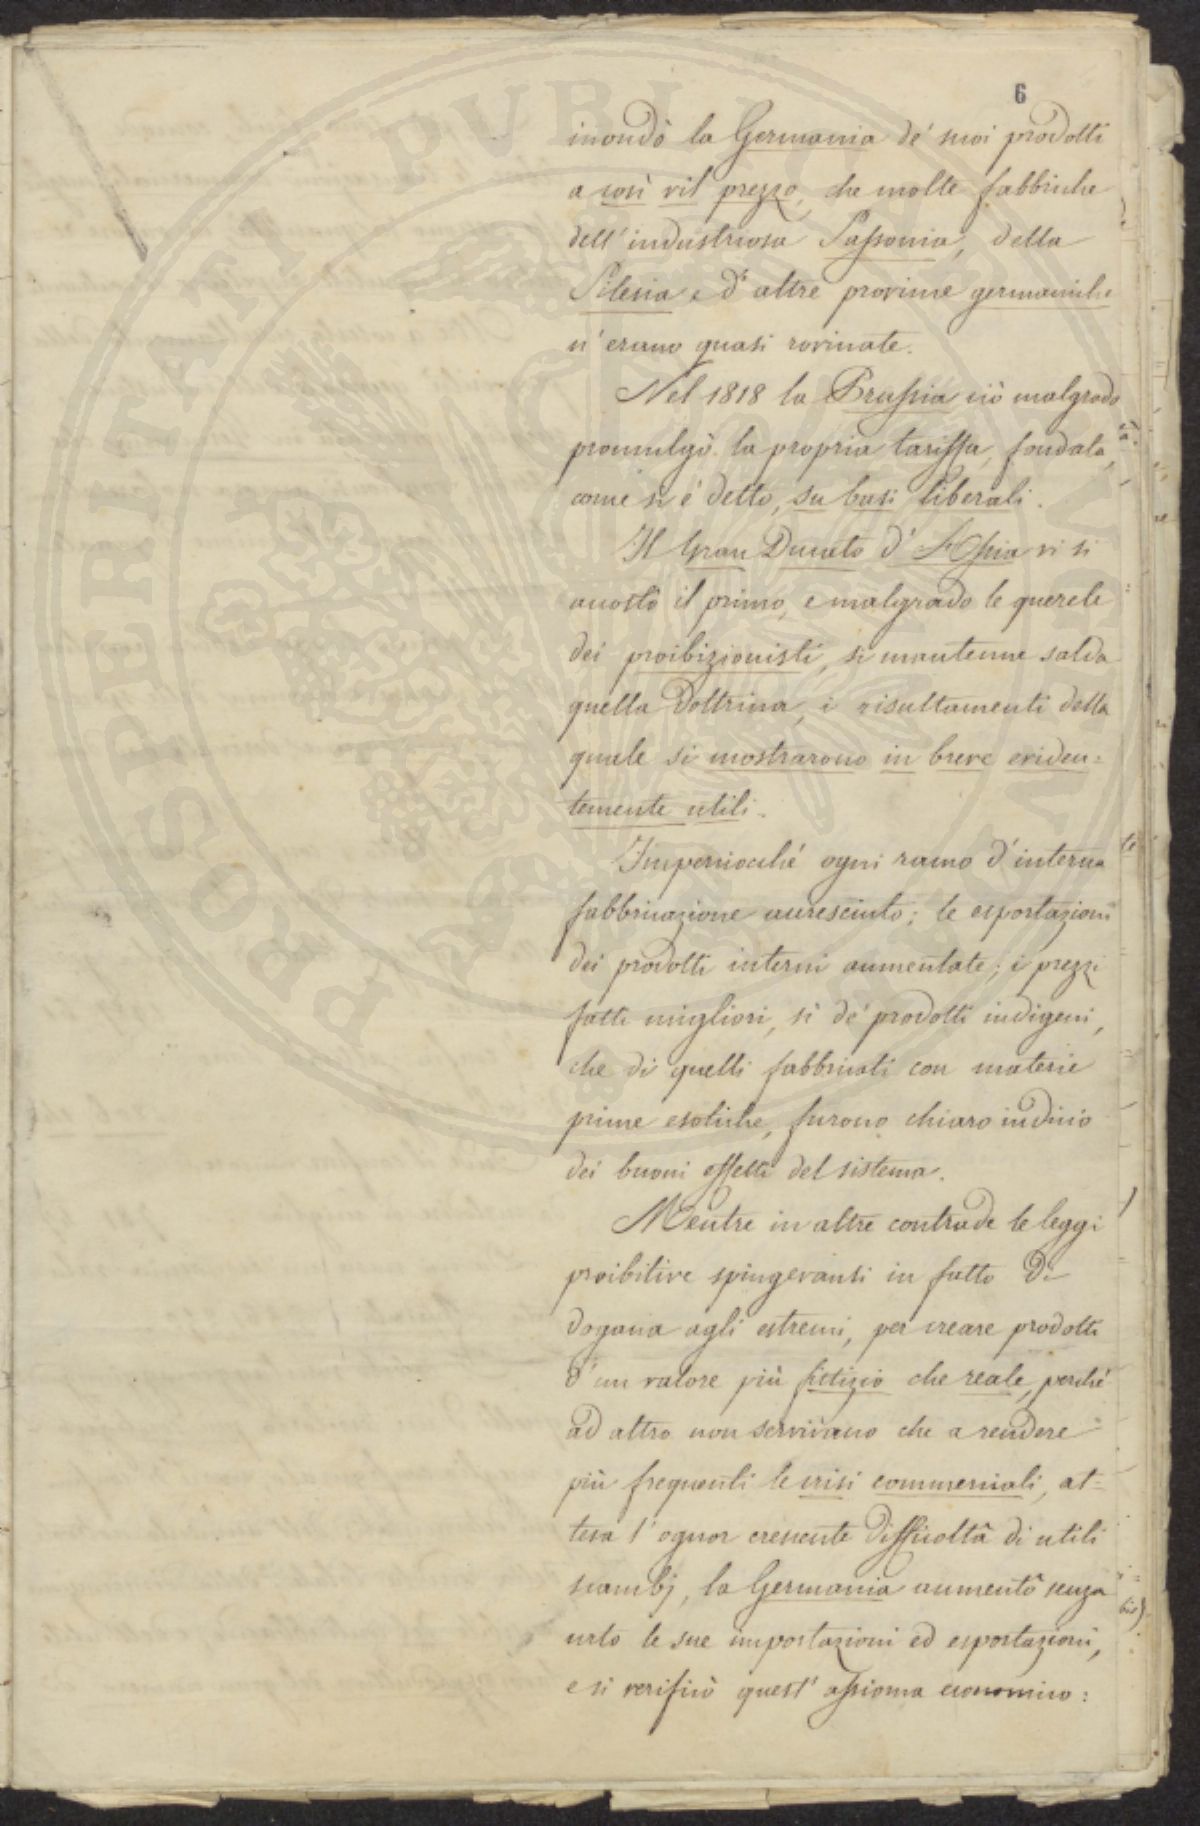 6
inondò la Germania de' suoi prodotti
a così vil prezzo, che molte fabbriche
dell'industriosa Sassonia, della
Silesia e d'altre provincie germaniche
n'erano quasi rovinate.
Nel 1818 la Prussia ciò malgrado
promulgò la propria tariffa, fondata,
come si è detto, su basi liberali.
Il Gran Ducato d'Assia vi si
accostò il primo, e malgrado le querele
dei proibizionisti, si mantenne salda
quella dottrina, i risultamenti della
quale si mostrarono in breve eviden=
temente utili.
Imperciocché ogni ramo d'interna
fabbricazione accresciuto; le esportazioni
dei prodotti interni aumentate; i prezzi
fatti migliori, sì de' prodotti indigeni,
che di quelli fabbricati con materie
prime esotiche, furono chiaro indicio
dei buoni effetti del sistema.
Mentre in altre contrade le leggi
proibitive spingevansi in fatto di
dogana agli estremi, per creare prodotti
d'un valore più fittizio che reale, perché
ad altro non servivano che a rendere
più frequenti le crisi commerciali, at=
tesa l'ognor crescente difficoltà di utili
scambj, la Germania aumentò senza
urto le sue importazioni ed esportazioni,
e si verificò quest'assioma economico:
PROSPERITATI PVBLICAE